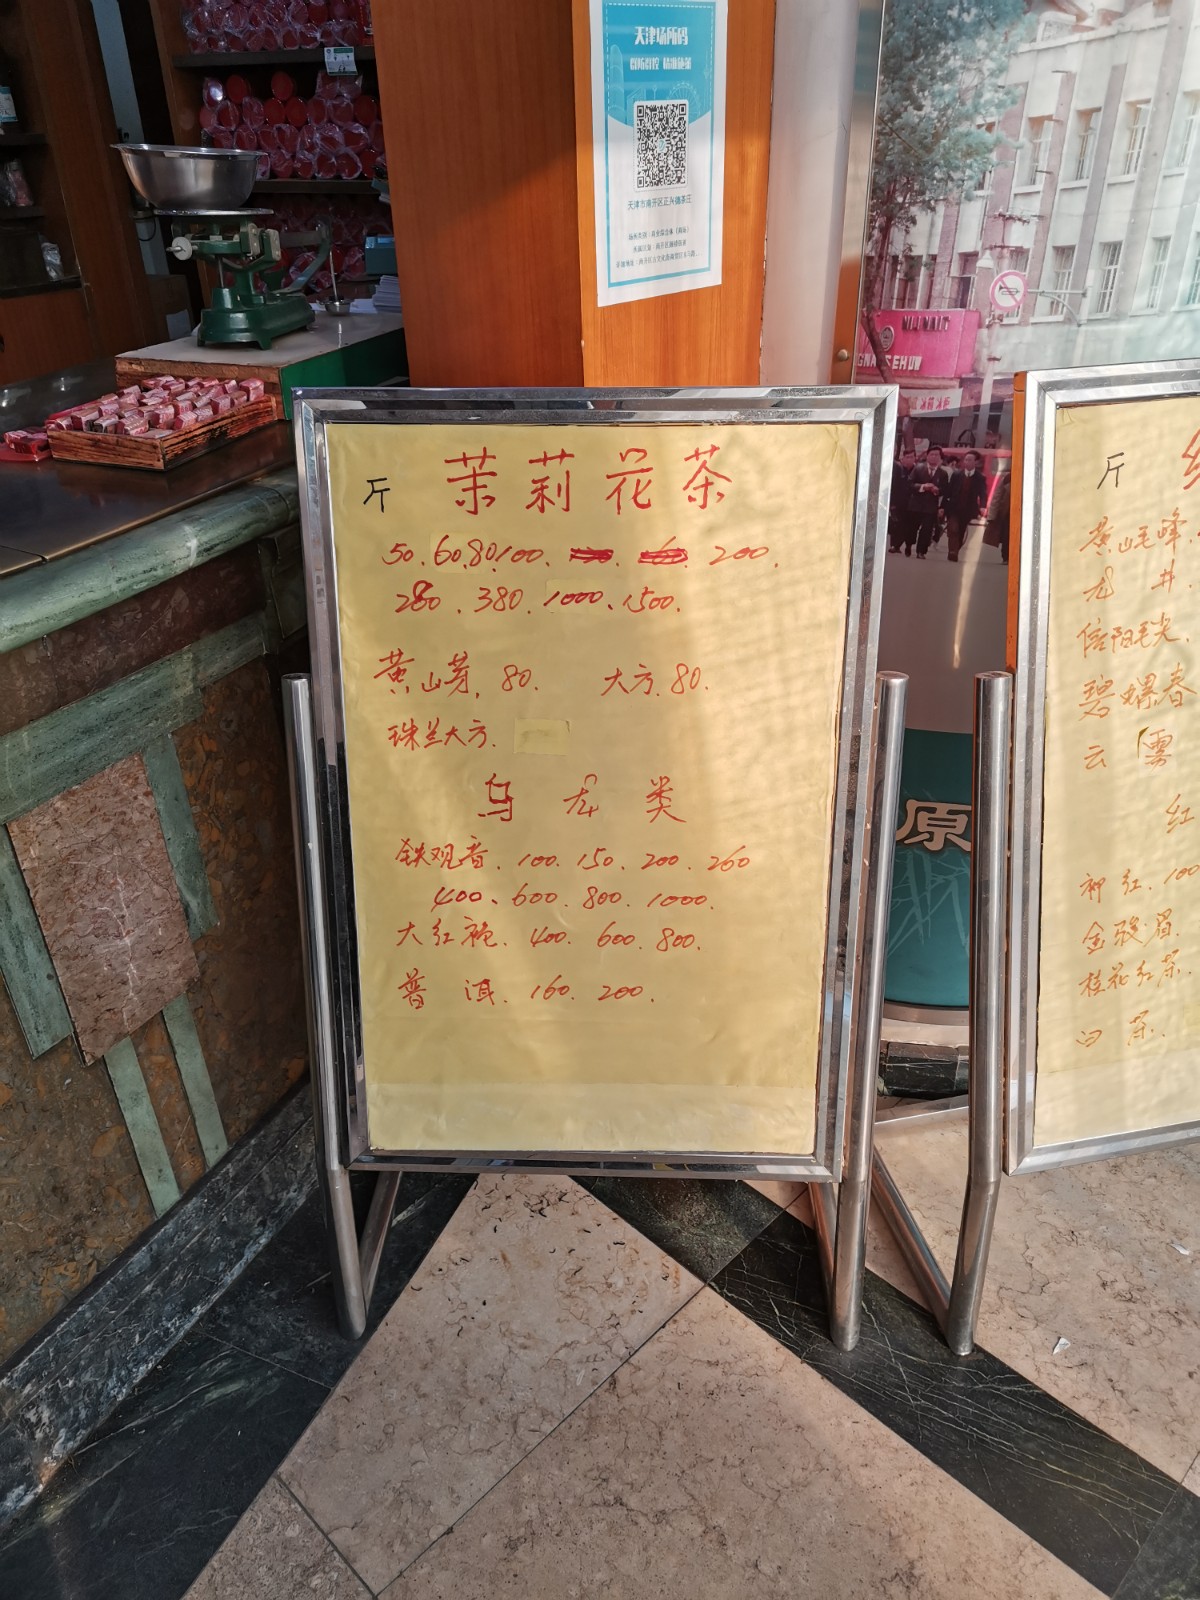 天津场所码
天津市南开区正兴德茶庄
NIJNAIT
原
斤 茉莉花茶
50.60.80.100. 200.
280.380.1000.1500.
黄山芽.80. 大方.80.
珠兰大方.
乌龙类
铁观音.100.150.200.260
400.600.800.1000.
大红袍.400.600.800.
普洱.160.200.
斤
黄山毛峰.
龙井.
信阳毛尖.
碧螺春
云雾
红
祁红.100
金骏眉.
桂花红茶.
白茶.